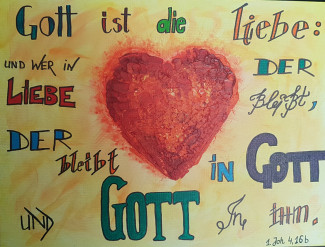 Gott ist die Liebe:
UND WER IN DER
LIEBE bleibt,
DER bleibt in GOTT
UND GOTT In ihm.
1. Joh. 4,16b